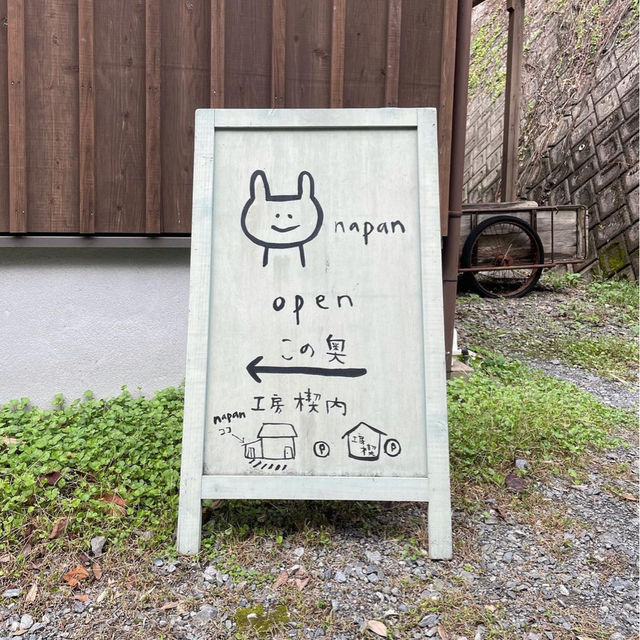 napan
open
この奥
工房楔内
napan
ココ
P
工房
楔
P